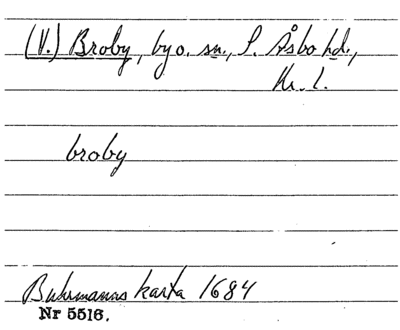 (V.) Broby, by o. sn., S. Åsbo hd.,
Kr. l.
broby
Buhrmanns karta 1684
Nr 5516.